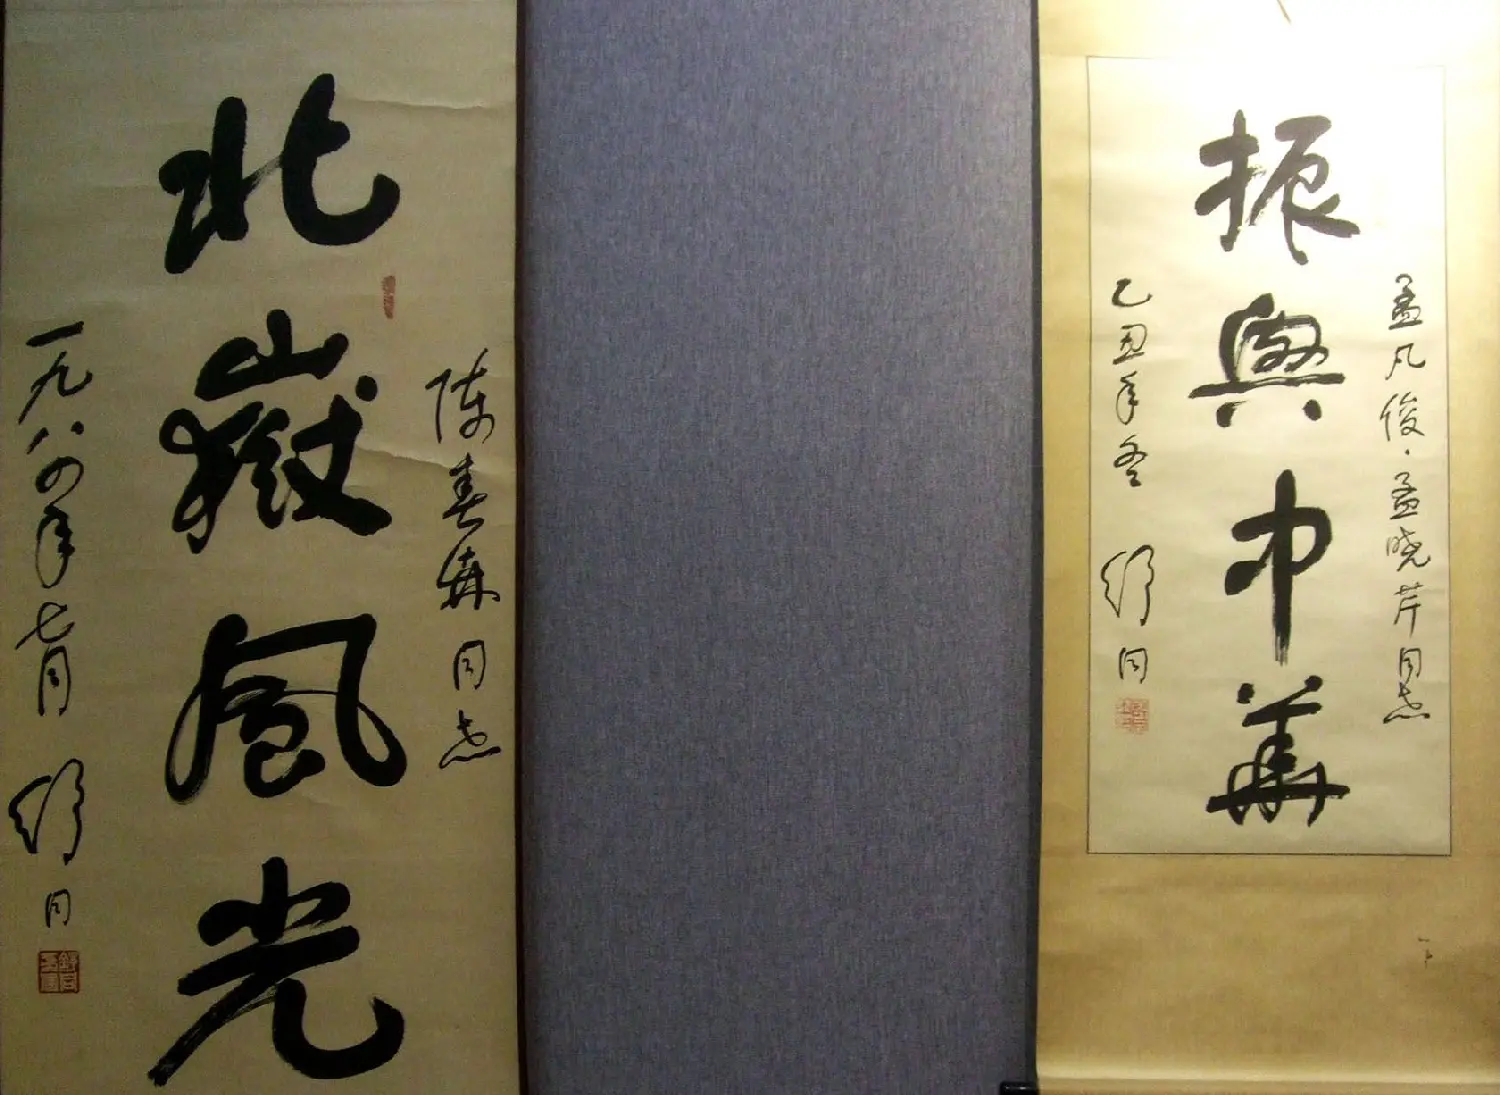 陈春森同志
北嶽風光
一九八四年七月 舒同
孟凡俊·孟晓芹同志
振興中華
乙丑年冬 舒同